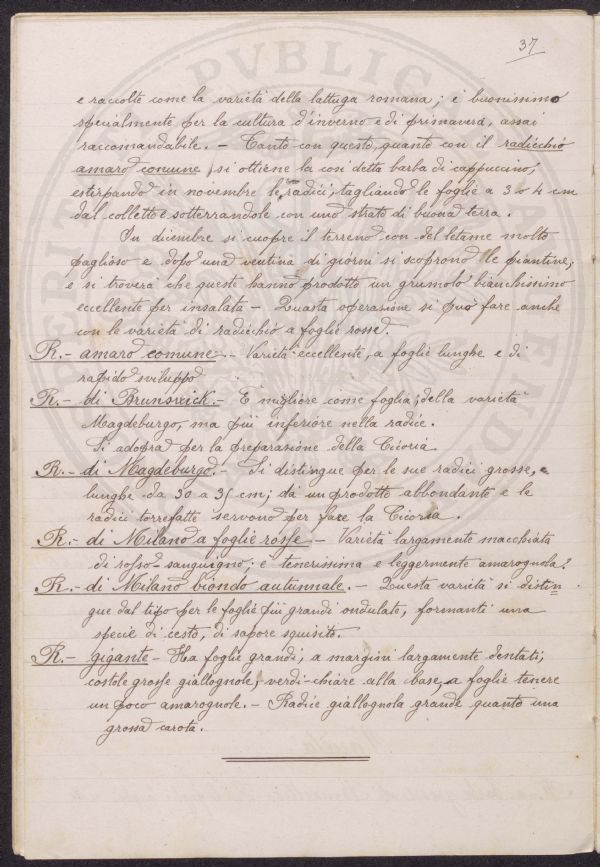 37
e raccolte come la varietà della lattuga romana; è buonissimo
specialmente per la cultura d'inverno e di primavera, assai
raccomandabile. - Tanto con questo, quanto con il radicchio
amaro comune, si ottiene la così detta barba di cappuccino,
estirpando in novembre le radici, tagliando le foglie a 3 o 4 cm
dal colletto e sotterrandole con uno strato di buona terra.
In dicembre si cuopre il terreno con del letame molto
paglioso e dopo una ventina di giorni si scoprono le piantine,
e si troverà che queste hanno prodotto un grumolo bianchissimo
eccellente per insalata - Quasta operasione si può fare anche
con le varietà di radicchio a foglie rosse.
R. - amaro comune. - Varietà eccellente, a foglie lunghe e di
rapido sviluppo
R. - di Brunswick. - È migliore come foglia, della varietà
Magdeburgo, ma più inferiore nella radice.
Si adopra per la preparasione della Cicoria
R. - di Magdeburgo. - Si distingue per le sue radici grosse, e
lunghe da 30 a 35 cm; dà un prodotto abbondante e le
radici torrefatte servono per fare la Cicoria.
R. - di Milano a foglie rosse - Varietà largamente macchiata
di rosso-sanguigno; è tenerissima e leggermente amarognola.
R. - di Milano biondo autunnale. - Questa varietà si distin=
gue dal tipo per le foglie più grandi ondulate, formanti una
specie di cesto, di sapore squisito.
R. - gigante - Ha foglie grandi, a margini largamente dentati,
costole grosse giallognole, verdi-chiare alla base, a foglie tenere
un poco amarognole. - Radice giallognola grande quanto una
grossa carota.